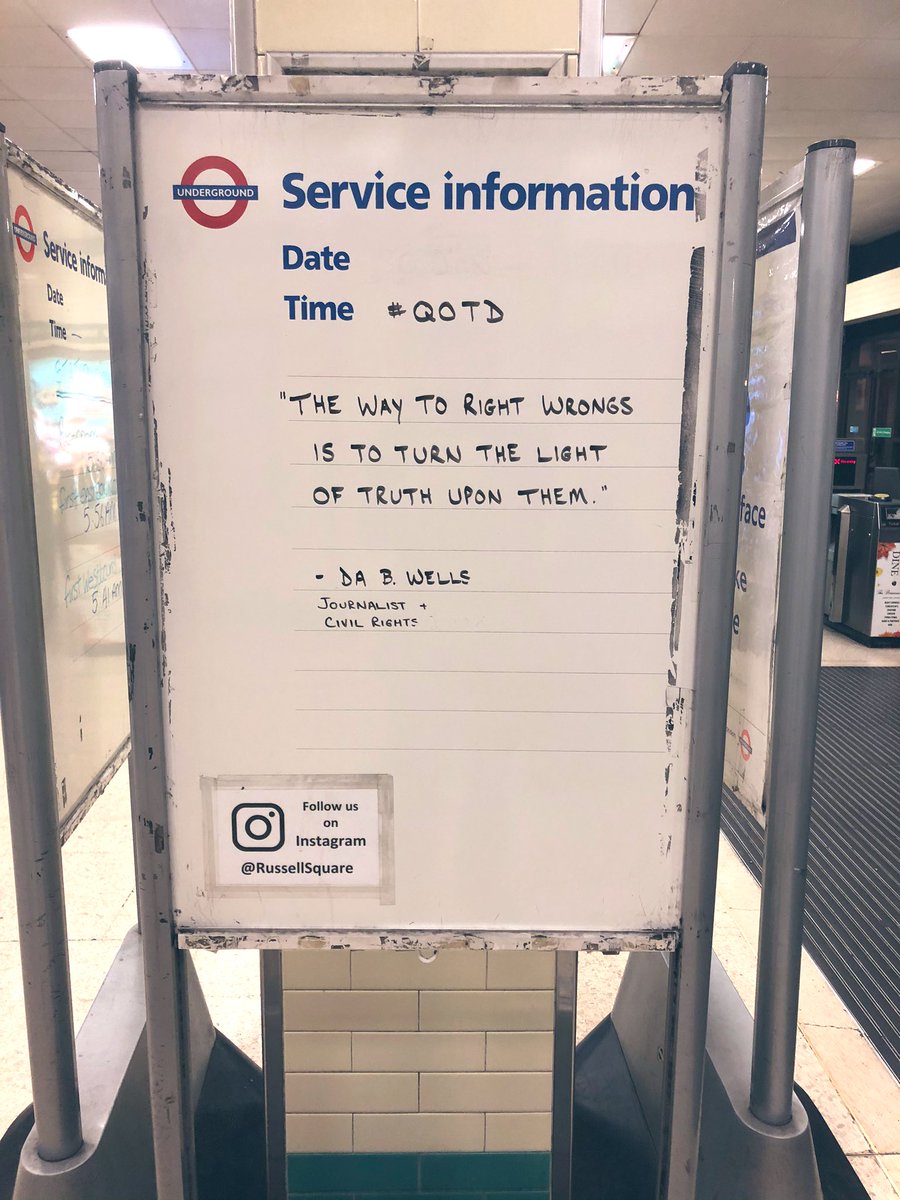 UNDERGROUND
Service information
Date
Time #QOTD
"THE WAY TO RIGHT WRONGS
IS TO TURN THE LIGHT
OF TRUTH UPON THEM."
- DA B. WELLS
JOURNALIST +
CIVIL RIGHTS
Follow us
on
Instagram
@RussellSquare
Service inform
Date
Time
5.41AM
face
ke
e
DINE